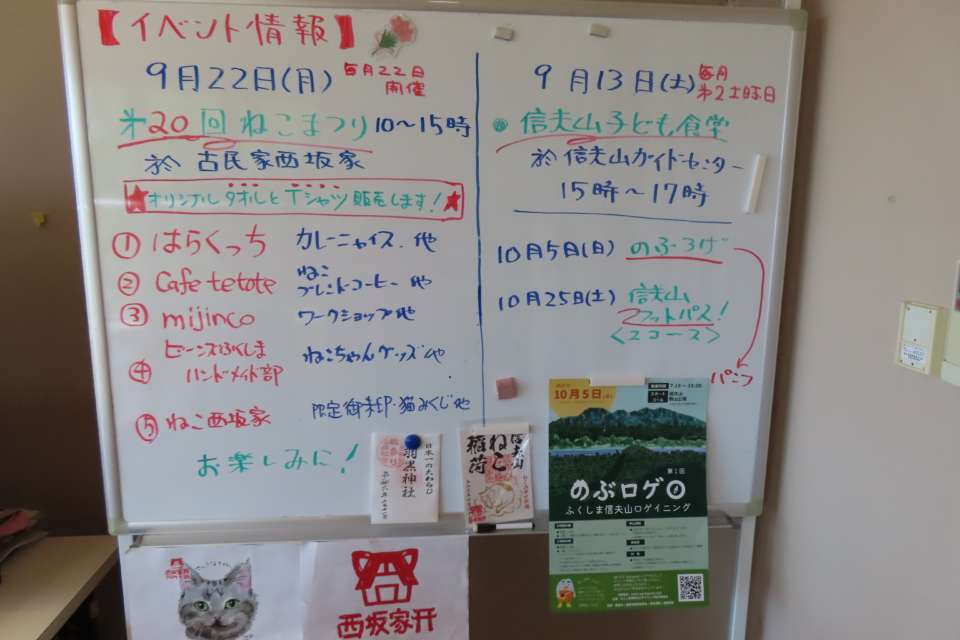 【イベント情報】
9月22日(月) 毎月22日
開催
第20回 ねこまつり 10〜15時
於 古民家西坂家
★オリジナルタオルとTシャツ販売します!★
① はらくっち カレーニャイス.他
② Cafe tetote ねこ
ブレンドコーヒー 他
③ mijinco ワークショップ他
④ ビーンズふくしま
ハンドメイド部 ねこちゃんグッズ他
⑤ ねこ西坂家 限定御朱印・猫みくじ他
お楽しみに!
9月13日(土) 毎月
第2土曜日
◎信夫山子ども食堂
於 信夫山ガイドセンター
15時〜17時
10月5日(日) のぶろげ
10月25日(土) 信夫山
フットパス!
<2コース>
パンフ
日本一の大わらじ
羽黒神社
信夫山
ねこ
稲荷
10月5日(日)
7:15〜15:00
スタート
ゴール
第1回
のぶロゲ
ふくしま信夫山ロゲイニング
西坂家开